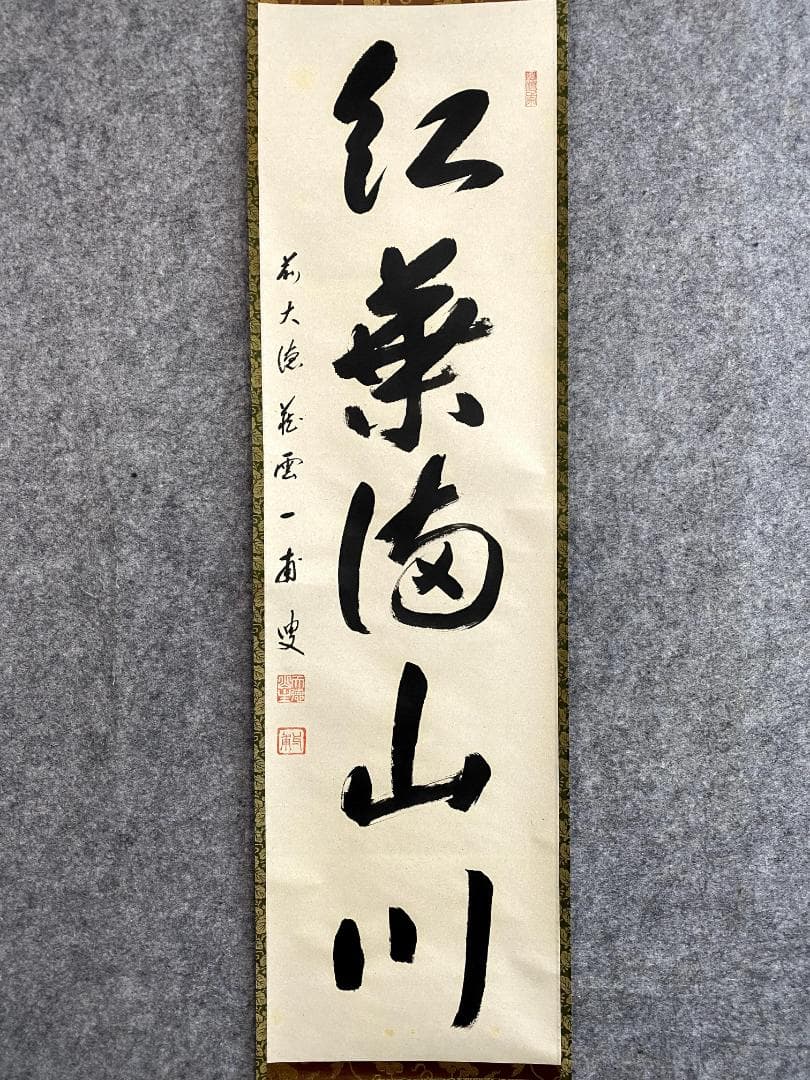 紅葉満山川
前大徳 雲一甫叟